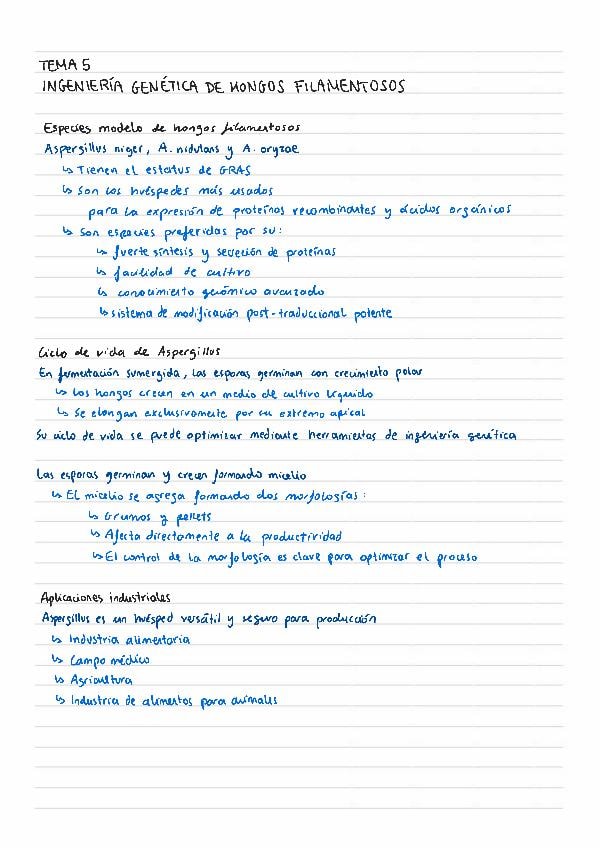 TEMA 5
INGENIERÍA GENÉTICA DE HONGOS FILAMENTOSOS
Especies modelo de hongos filamentosos
Aspergillus niger, A. nidulans y A. oryzae
↳ Tienen el estatus de GRAS
↳ Son los huéspedes más usados
para la expresión de proteínas recombinantes y ácidos orgánicos
↳ Son especies preferidas por su:
↳ fuerte síntesis y secreción de proteínas
↳ facilidad de cultivo
↳ conocimiento genómico avanzado
↳ sistema de modificación post-traduccional potente
Ciclo de vida de Aspergillus
En fermentación sumergida, las esporas germinan con crecimiento polar
↳ Los hongos crecen en un medio de cultivo líquido
↳ Se elongan exclusivamente por su extremo apical
Su ciclo de vida se puede optimizar mediante herramientas de ingeniería genética
Las esporas germinan y crecen formando micelio
↳ El micelio se agrega formando dos morfologías:
↳ Grumos y pellets
↳ Afecta directamente a la productividad
↳ El control de la morfología es clave para optimizar el proceso
Aplicaciones industriales
Aspergillus es un huésped versátil y seguro para producción
↳ Industria alimentaria
↳ Campo médico
↳ Agricultura
↳ Industria de alimentos para animales